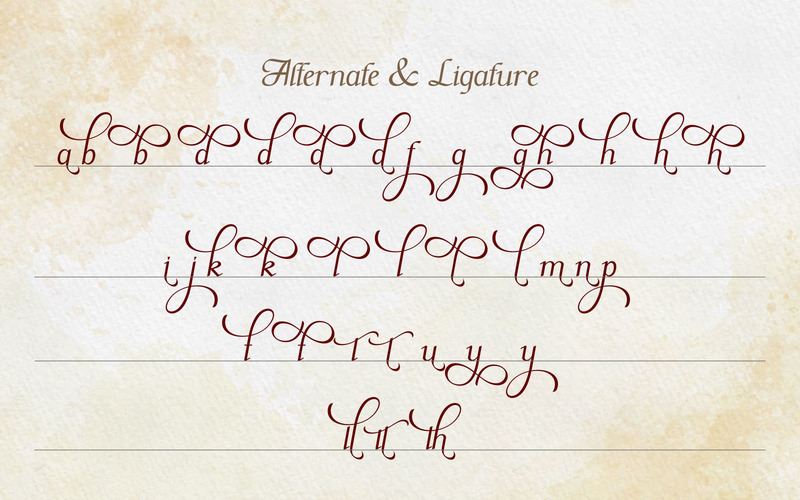 Alternate & Ligature
a b b d d d d f g g h h h h
i j k k l l l l m n p
t t t t u y y
tl tt th